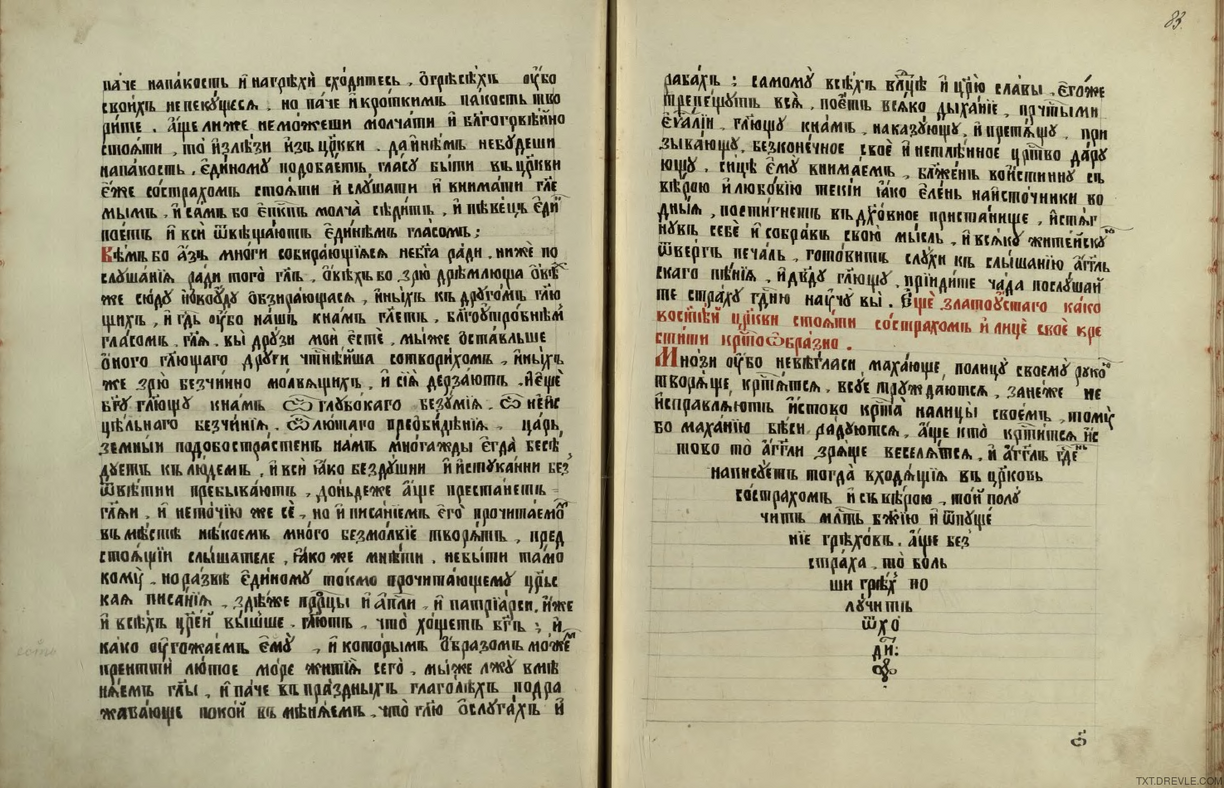 па́че напа́кость и҆ нагрѣхѝ сходи́тесь . ѡ҆грѣсѣ́хъ ᲂу҆́бо
свои́хъ непекꙋ́щесѧ . но па́че и҆кро́ткимъ па́кость тво
ри́те . а҆́ще ли́же неможеши молча́ти и҆ бл҃гоговѣ́йно
стоѧ́ти , то̀ и҆зле́зи и҆зъ цр҃кви . да́и҆нѣмъ небꙋ́деши
напа́кость . є҆ди́номꙋ подоба́етъ гла́сꙋ бы́ти въцр҃кви
є҆́же состра́хомъ стоѧ́ти и҆ слꙋ́шати и҆ внима́ти гл҃е
мымъ , и҆ са́мъ бо є҆пⷭ҇къпъ молча̀ сѣди́тъ , и҆ пѣве́цъ є҆ди́нъ
пое́тъ и҆ всѝ ѿвѣща́ютъ є҆ди́нѣмъ гла́сомъ ;
Вѣ́мъ бо а҆́зъ мно́ги собира́ющїѧсѧ небг҃а ра́ди . ниже по
слꙋша́нїѧ ра́ди того̀ гл҃ъ , ѻ҆́вѣхъ бо зрю̀ дрѣ́млюща ѻ҆́вѣ
же сю́дꙋ и҆ѻ҆во́ꙋдꙋ ѡ҆бзира́ющасѧ , и҆ны́хъ къ дрꙋго́мъ гл҃ю
щихъ , и҆ гдⷭ҇ь ᲂу҆́бо на́шъ кна́мъ гл҃етъ , бл҃гоꙋтро́внымъ
гла́сомъ гл҃ѧ . вы̀ дрꙋ́зи моѝ є҆стѐ , мы́же ѡ҆ста́вльше
ѻ҆́ного гл҃ющаго дрꙋ́ги чтⷭ҇нѣйша сотвори́хомъ . и҆ны́хъ
же зрю̀ безчи́нно мо́лвѧщихъ , и҆ сїѧ̀ дерза́ютъ . и҆є҆щѐ
бг҃ꙋ гл҃ющꙋ кна́мъ ѽ глꙋбо́каго безꙋ́мїѧ . ѽ неис
цѣ́льнаго безчи́нїѧ . ѽ лю́таго презви́дѣнїѧ . ца́рь ,
земны́и подобостра́стенъ на́мъ мно́гажды є҆гда̀ бесѣ́
дꙋетъ къ лю́демъ , и҆ всѝ ꙗ҆́ко безꙋ́шни и҆ и҆стꙋка́нни без
ѿвѣ́тни пребыва́ютъ , до́ньдеже а҆́ще преста́нетъ
гл҃ѧи . и҆ нето́чїю же сѐ , но и҆ писа́нїемъ є҆го̀ прочита́емо
въ мѣ́стѣ нѣ́коемъ мно́го безмо́лвїе творѧ́тъ , пред
стоѧ́щїи слы́шателе , ꙗ҆́ко же мнѣ́ти , небы́ти та́мо
комꙋ̀ . но ра́звѣ є҆ди́номꙋ то́кмо прочита́ющемꙋ цр҃ьс
каѧ писа́нїѧ , здѣ́же прⷪ҇ро́цы и҆ а҆пⷭ҇ли , и҆ патрїа́рси , и҆́же
и҆ всѣ́хъ цр҃ей вы́шше . гл҃ютъ . что̀ хо́щетъ бг҃ъ ; и҆
ка́ко ᲂу҆гожа́емъ є҆мꙋ̀ , и҆ кото́рымъ ѻ҆́бразомъ мо́жемъ
преити́и лю́тое мо́ре житїѧ̀ сего̀ . мы́же лжꙋ̀ вмѣ
нѧ́емъ гл҃ы , и҆ па́че въ пра́здныхъ глаго́лѣхъ подра
жава́юще поко́и въ мѣнѧ́емъ . что̀ гл҃ю ѡ҆слꙋга́хъ и҆
83.
раба́хъ ; самомꙋ̀ всѣ́хъ влⷣцѣ и҆ цр҃ю̀ сла́вы , є҆го́же
трепе́щꙋтъ всѧ̀ , пое́тъ всѧ́ко дыха́нїе , пречⷭ҇тыми
є҆ѵⷢ҇алїи , гл҃ющꙋ кна́мъ , наказꙋ́ющꙋ , и҆ претѧ́щꙋ , при
зыва́ющꙋ , безконе́чное своѐ и҆ нетлѣ́нное црⷭ҇тво да́рꙋ
ющꙋ . си́це є҆мꙋ̀ внима́емъ , бл҃же́нъ вои́стиннꙋ съ
вѣ́рою и҆ любо́вїю текі́и ꙗ҆́ко є҆ле́нь наи҆сто́чники во
дны́ѧ , пости́гнетъ въдх҃о́вное приста́нище , и҆стѧ́г
нꙋвъ себѐ и҆ собра́въ свою̀ мы́сль , и҆ всѧ́кꙋ жите́йскꙋю
ѿве́ргъ печа́ль , гото́витъ слꙋ́хи къ слы́шанїю а҆́гг҃ль
скаго пѣ́нїѧ , и҆ дв҃дꙋ гл҃ющꙋ , прїиди́те ча́да послꙋ́шай
те стра́хꙋ гдⷭ҇ню наꙋчꙋ̀ вы̀ . Є҆щѐ златоꙋ́стаго ка́ко
восвѧ҃тѣ́й цр҃кви стоѧ́ти состра́хомъ и҆ лицѐ своѐ кре
сти́ти крⷭ҇тоѡбра́зно .
Мно́зи ᲂу҆́бо невѣ́гласи маха́юще , полицꙋ̀ своемꙋ̀ рꙋко́ю
творѧ́ще , крⷭ҇тѧ́тсѧ , всꙋ́е трꙋжда́ютсѧ , зане́же не
и҆справлѧ́ютъ и҆́стово крⷭ҇та̀ налицы̀ свое́мъ , томꙋ̀
бо маха́нїю бѣ́си ра́дꙋютсѧ , а҆́ще кто̀ крⷭ҇ти́тсѧ и҆с
тово то̀ а҆́гг҃ли зрѧ́ще веселѧ́тсѧ , и҆ а҆́гг҃лъ гдⷭ҇ень
написꙋ́етъ тогда̀ входѧ́щїѧ въ цр҃ковь
состра́хомъ и҆ съвѣ́рою , то́й полꙋ
чи́тъ млⷭ҇ть бж҃їю и҆ ѿпꙋще
нїе грѣхо́въ . а҆́ще без
стра́ха . то̀ бо́ль
ши грѣ́хъ по
лꙋчи́тъ
ѿхо
дѧ̀: